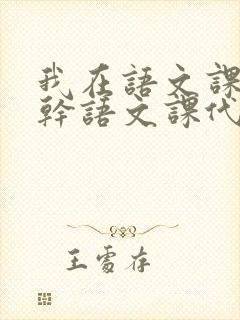 我在語文課
幹語文課代
王雪存